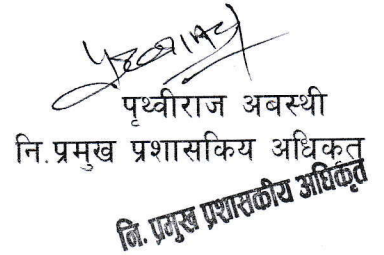 पृथ्वीराज अवस्थी
नि.प्रमुख प्रशासकिय अधिकृत
नि. प्रमुख प्रशासकीय अधिकृत